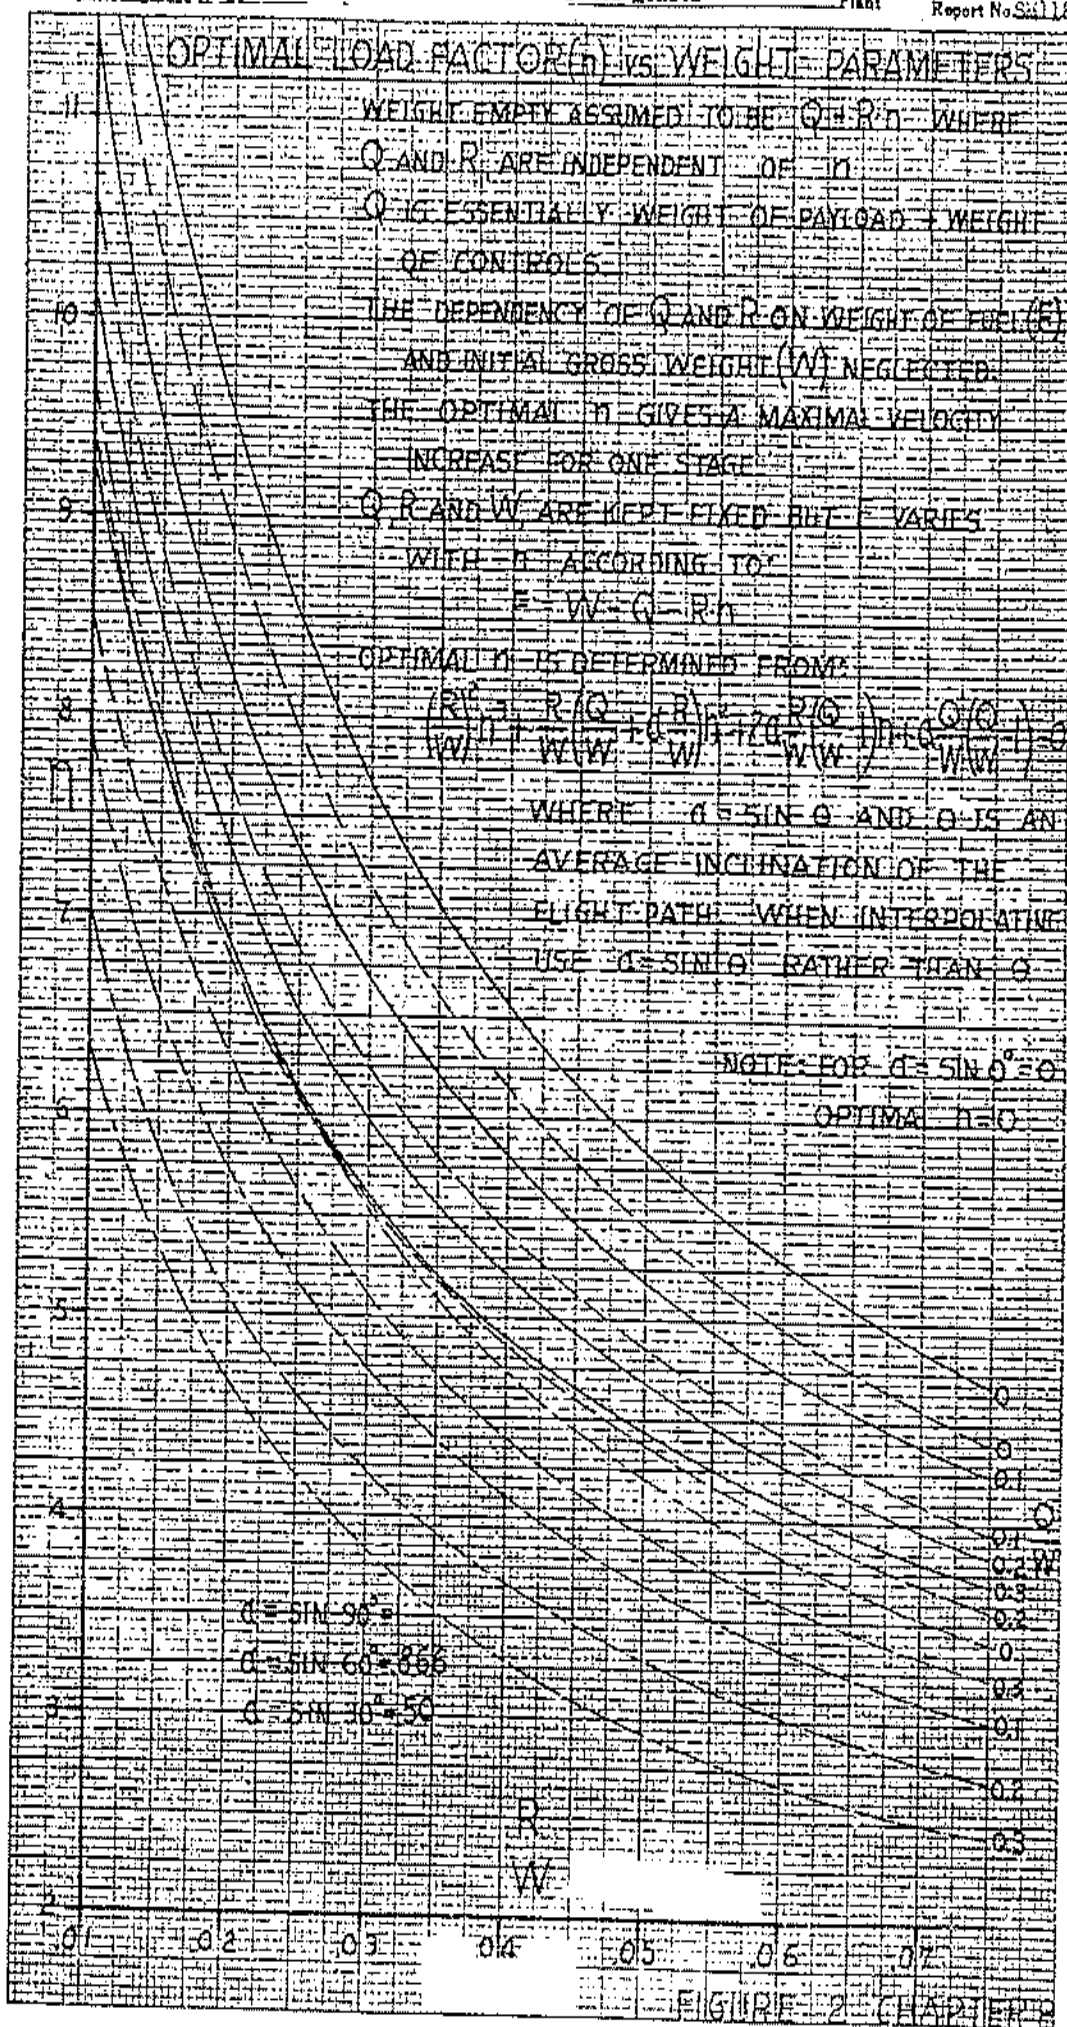 Plant
Report No
OPTIMAL LOAD FACTOR (n) vs WEIGHT PARAMETERS
WEIGHT EMPTY ASSUMED TO BE Q + R·n WHERE
Q AND R ARE INDEPENDENT OF n
Q IS ESSENTIALLY WEIGHT OF PAYLOAD + WEIGHT
OF CONTROLS
THE DEPENDENCY OF Q AND R ON WEIGHT OF FUEL (F)
AND INITIAL GROSS WEIGHT (W) NEGLECTED.
THE OPTIMAL n GIVES A MAXIMAL VELOCITY
INCREASE FOR ONE STAGE
Q, R AND W, ARE KEPT FIXED BUT F VARIES
WITH n ACCORDING TO:
F = W - Q - R·n
OPTIMAL n IS DETERMINED FROM:
(R/W)² n³ + R/W (Q/W + a R/W) n² + 2a R/W (Q/W - 1) n + a Q/W (Q/W - 1) = 0
WHERE a = SIN θ AND θ IS AN
AVERAGE INCLINATION OF THE
FLIGHT PATH. WHEN INTERPOLATING
USE a = SIN θ RATHER THAN θ
NOTE: FOR a = SIN 0° = 0
OPTIMAL n = 0
11
10
9
8
n
7
6
5
4
3
2
0
0
0.1
0.1
0.2
0.3
0.2
0
0.3
0.1
0.2
0.3
Q
W
a = SIN 90° = 1
a = SIN 60° = .866
a = SIN 30° = .50
R
W
.01 .02 .03 .04 .05 .06 .07
FIGURE 2 CHAPTER